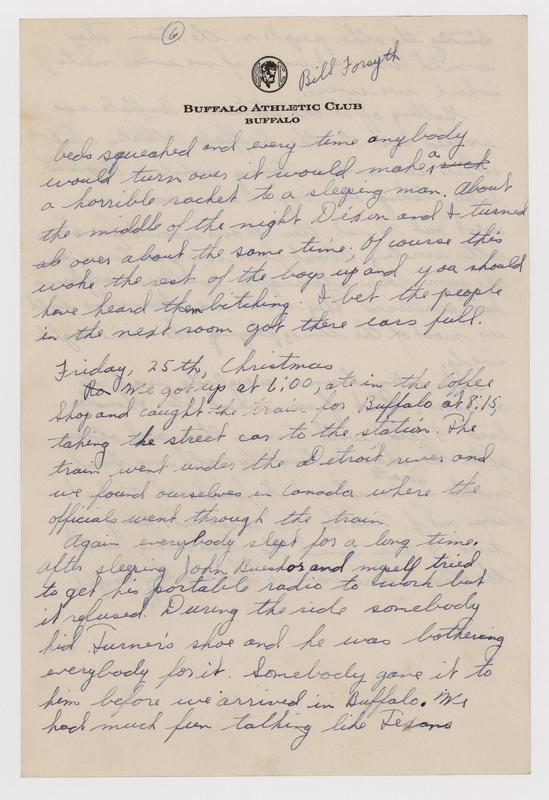 6
Bill Forsyth
BUFFALO ATHLETIC CLUB
BUFFALO
beds squeaked and every time anybody
would turn over it would make a such
a horrible racket to a sleeping man. About
the middle of the night Dixon and I turned
over about the same time. Of course this
woke the rest of the boys up and you should
have heard them bitching. I bet the people
in the next room got there ears full.
Friday, 25th, Christmas
We got up at 6:00, ate in the Coffee
Shop and caught the train for Buffalo at 8:15,
taking the street car to the station. The
train went under the Detroit river and
we found ourselves in Canada where the
officials went through the train.
Again everybody slept for a long time.
After sleeping John and myself tried
to get his portable radio to work but
it refused. During the ride somebody
hid Turner's shoe and he was bothering
everybody for it. Somebody gave it to
him before we arrived in Buffalo. We
had much fun talking like Texans